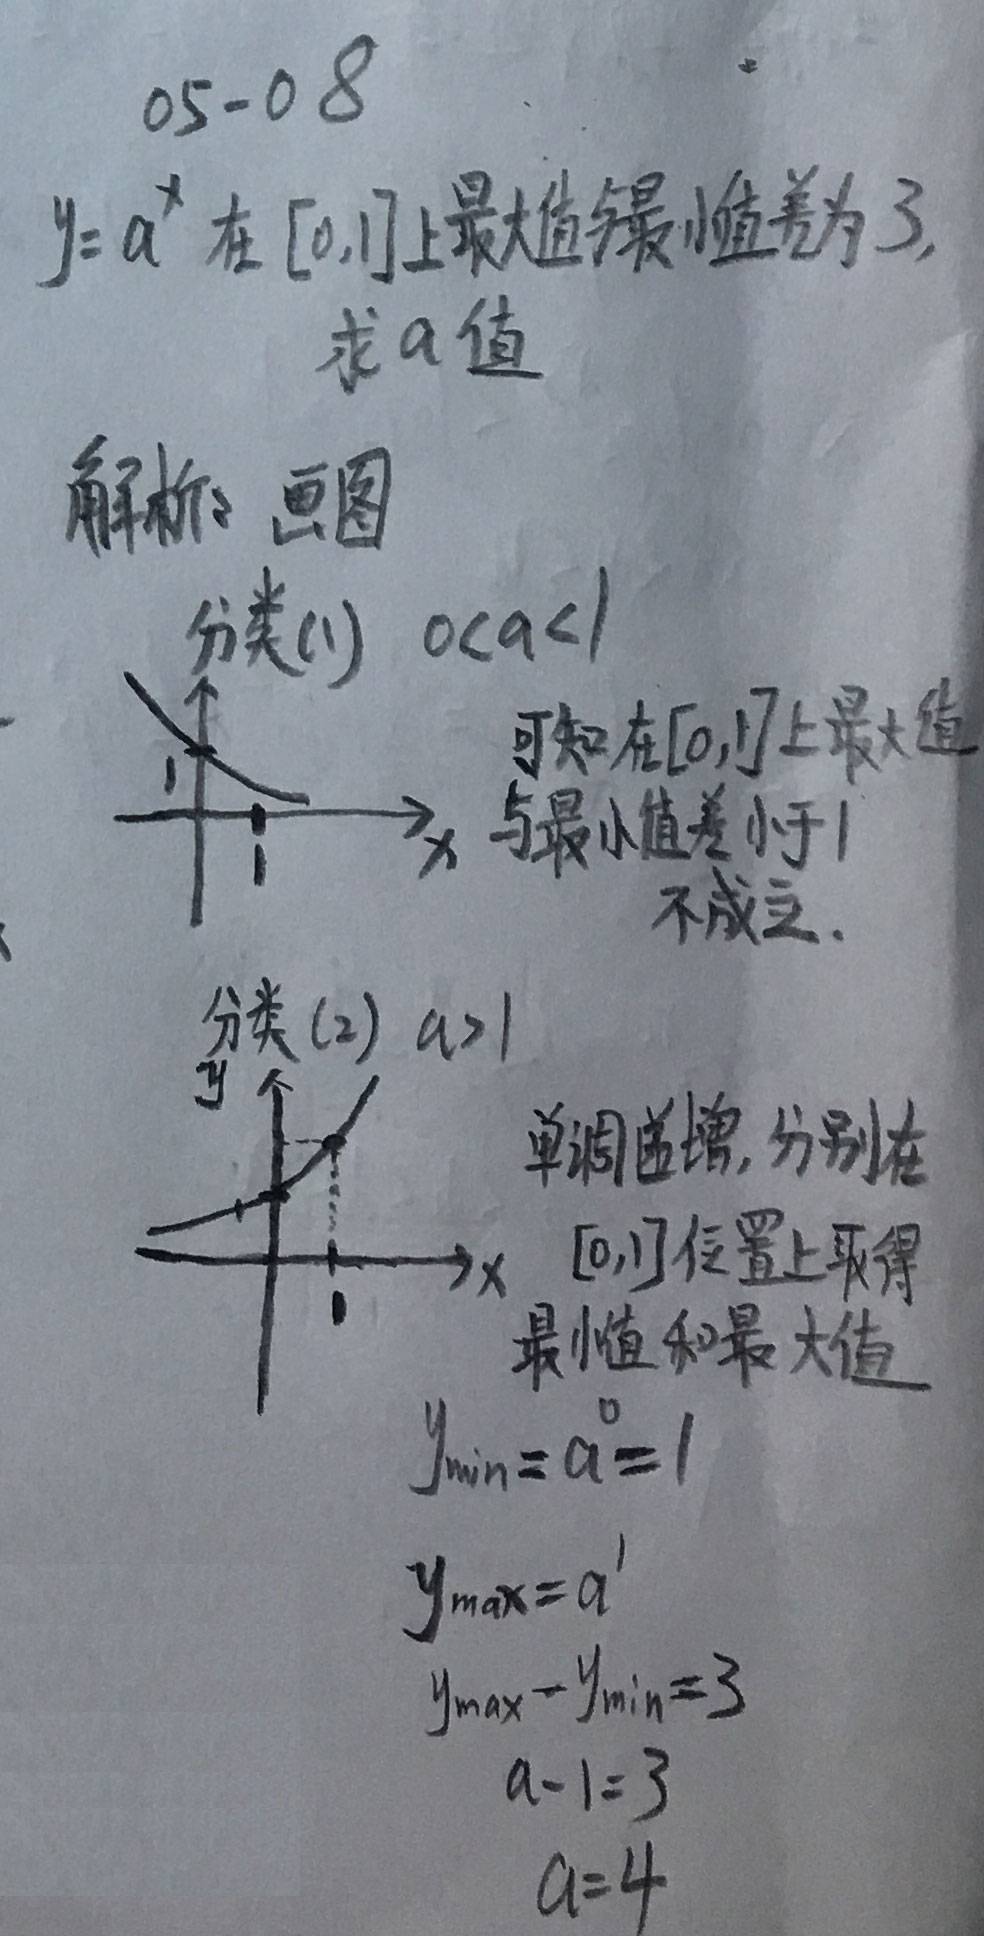 05-08
y=aˣ 在[0,1]上最大值与最小值差为3,
求a值
解析: 画图
分类(1) 0<a<1
1
1
x
可知在[0,1]上最大值
与最小值差小于1
不成立.
分类(2) a>1
y
x
1
单调递增,分别在
[0,1]位置上取得
最小值和最大值
ymin=a⁰=1
ymax=a¹
ymax-ymin=3
a-1=3
a=4